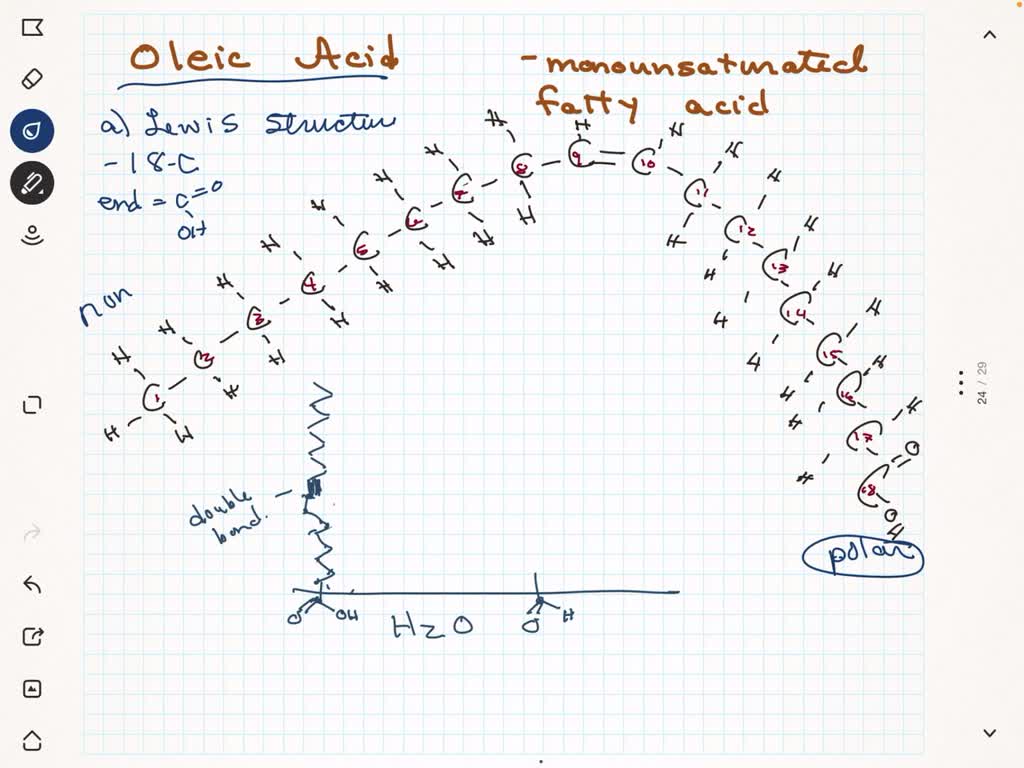 Oleic Acid
- monounsaturated
fatty acid
a) Lewis Structur
- 18-C
end = C=O
OH
non
H H H H H H H H H H
C 1 C 2 C 3 C 4 C 5 C 6 C 7 C 8 C 9 C 10
C 11 C 12 C 13 C 14 C 15 C 16 C 17 C 18
O
O
H
polar
double
bond.
O OH
H2O
O H
24 / 29